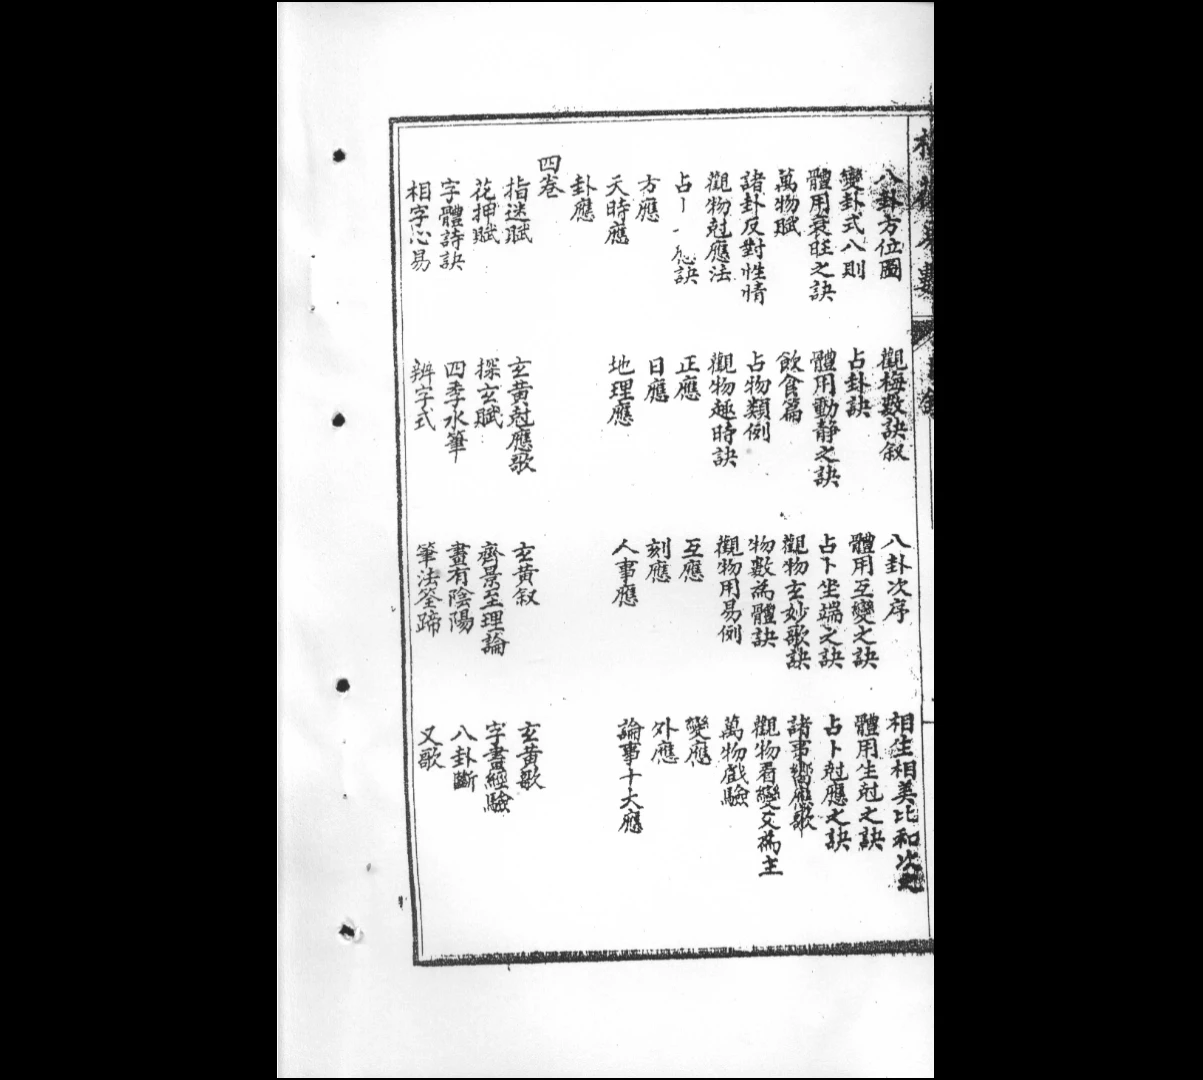 八卦方位圖 觀梅數訣叙 八卦次序 相生相美比和次
變卦式八則 占卦訣 體用互變之訣 體用生尅之訣
體用衰旺之訣 體用動静之訣 占卜坐端之訣 占卜尅應之訣
萬物賦 飲食篇 觀物玄妙歌訣 諸事響應歌
諸卦反對性情 占物類例 物數為體訣 觀物看變爻為主
觀物尅應法 觀物趣時訣 觀物用易例 萬物戲驗
占卜應訣 正應 互應 變應
方應 日應 刻應 外應
天時應 地理應 人事應 論事十大應
卦應
四卷
指迷賦 玄黄尅應歌 玄黄叙 玄黄歌
花押賦 探玄賦 齊景至理論 字畫經驗
字體詩訣 四季水筆 畫有陰陽 八卦斷
相字心易 辨字式 筆法筌蹄 又歌